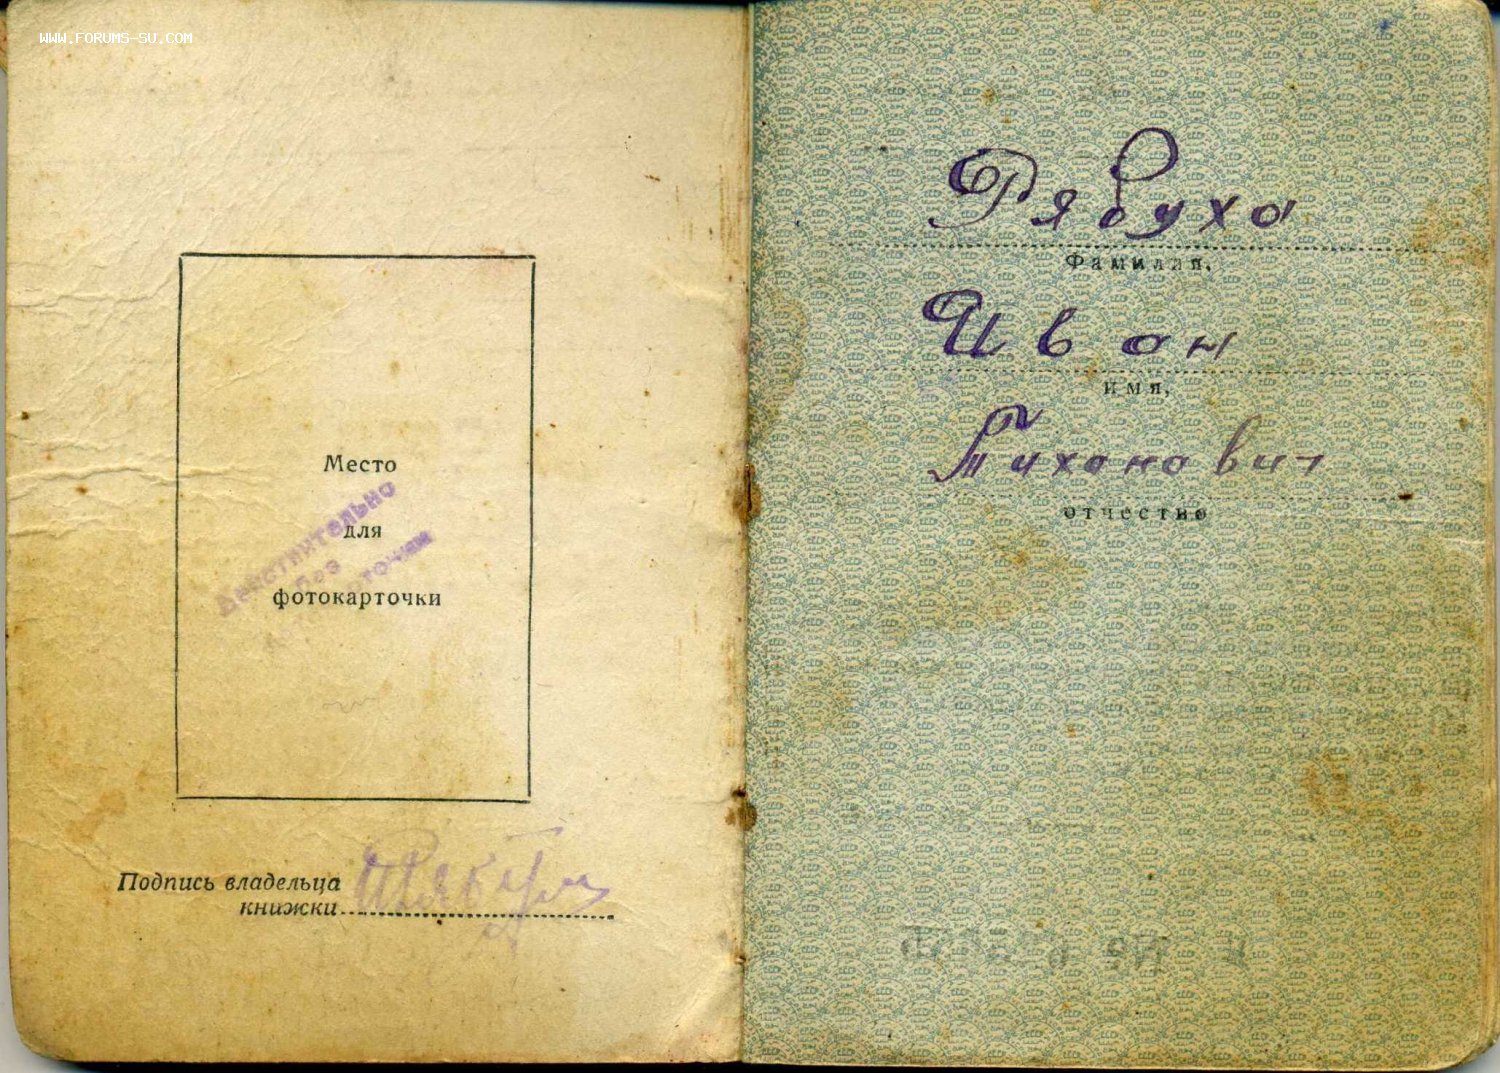 WWW.FORUMS-SU.COM
Место
для
фотокарточки
Действительно
без
Подпись владельца
книжки
Рябуха
Фамилия,
Иван
имя,
Тихонович
отчество